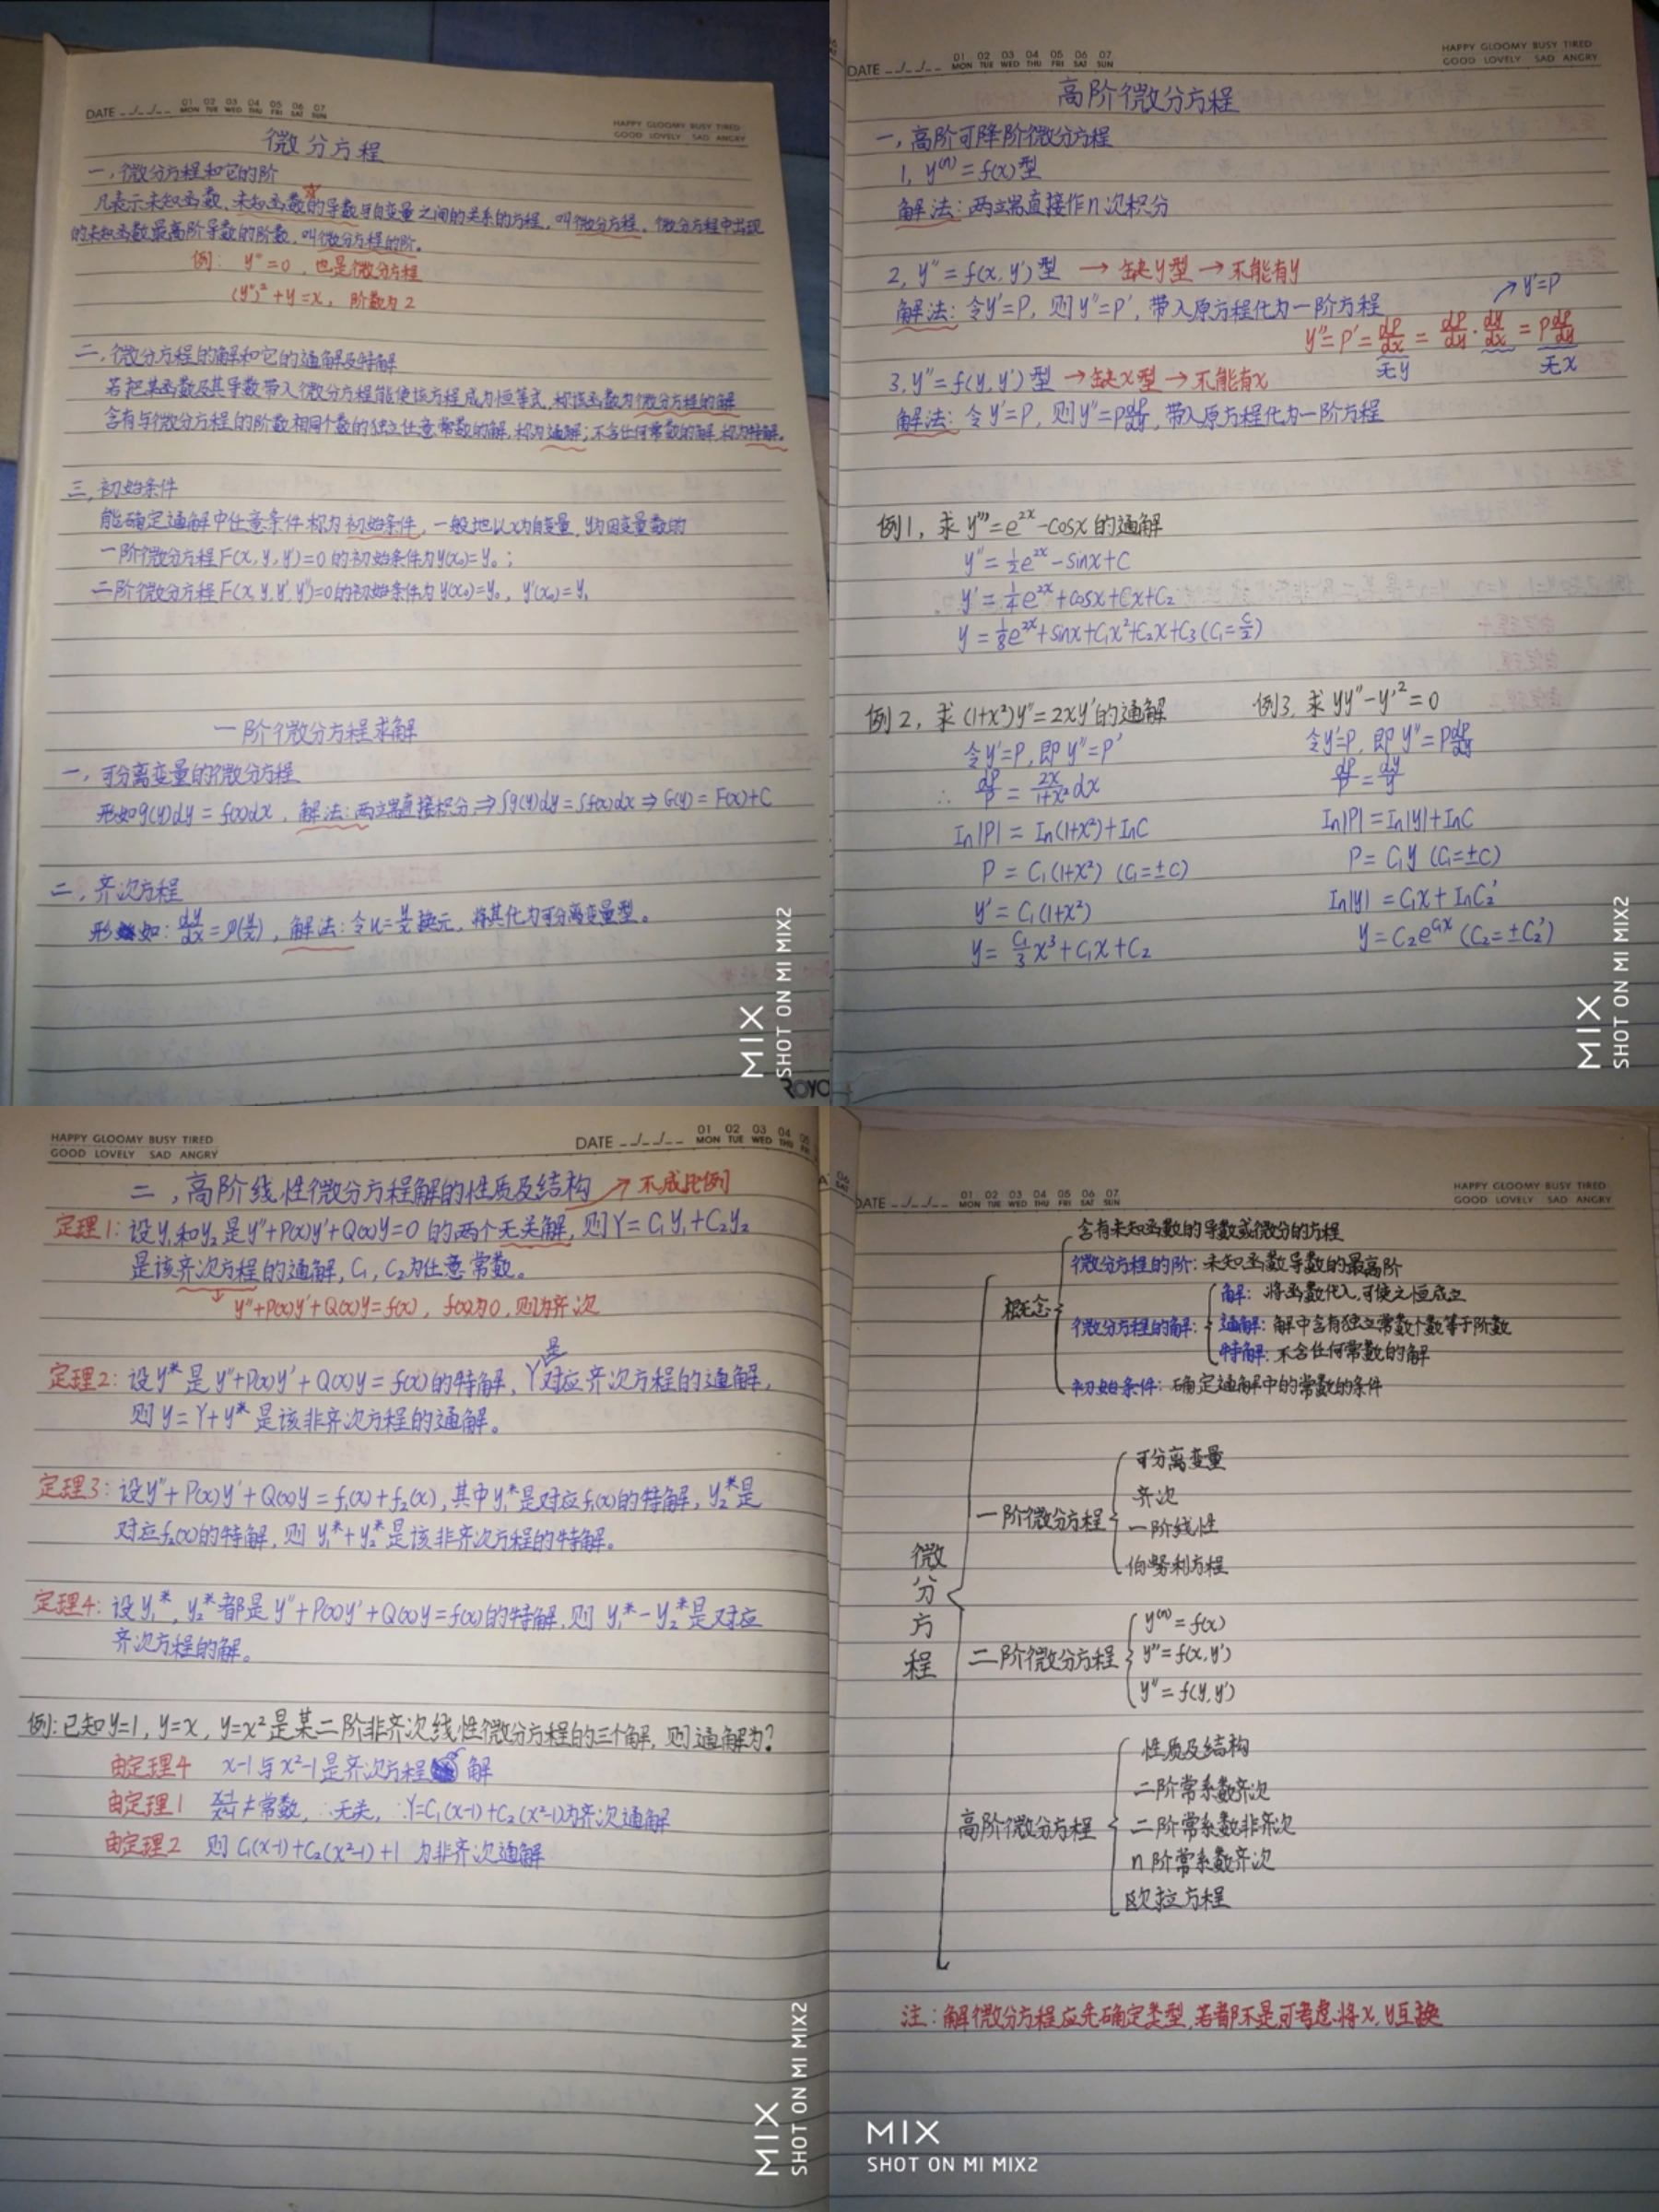 DATE _/_/__ 01 02 03 04 05 06 07
MON TUE WED THU FRI SAT SUN
HAPPY GLOOMY BUSY TIRED
GOOD LOVELY SAD ANGRY
微分方程
一,微分方程和它的阶
凡表示未知函数、未知函数的导数与自变量之间的关系的方程,叫微分方程。微分方程中出现
的未知函数最高阶导数的阶数,叫微分方程的阶。
例: y''=0,也是微分方程
(y'')²+y=x,阶数为2
二,微分方程的解和它的通解及特解
若把某函数及其导数带入微分方程能使该方程成为恒等式,称该函数为微分方程的解
含有与微分方程的阶数相同个数的独立任意常数的解,称为通解;不含任何常数的解,称为特解。
三,初始条件
能确定通解中任意条件称为初始条件,一般地以x为自变量,y为因变量数的
一阶微分方程F(x,y,y')=0的初始条件为y(x₀)=y₀;
二阶微分方程F(x,y,y',y'')=0的初始条件为y(x₀)=y₀,y'(x₀)=y₁
一阶微分方程求解
一,可分离变量的微分方程
形如g(y)dy=f(x)dx,解法:两边端直接积分⇒∫g(y)dy=∫f(x)dx⇒G(y)=F(x)+C
二,齐次方程
形如:dy/dx=φ(y/x),解法:令u=y/x换元,将其化为可分离变量型。
MIX
SHOT ON MI MIX2
ROYC
DATE _/_/__ 01 02 03 04 05 06 07
MON TUE WED THU FRI SAT SUN
HAPPY GLOOMY BUSY TIRED
GOOD LOVELY SAD ANGRY
高阶微分方程
一,高阶可降阶微分方程
1, y⁽ⁿ⁾=f(x)型
解法:两端直接作n次积分
2, y''=f(x,y')型→缺y型→不能有y
解法:令y'=P,则y''=P',带入原方程化为一阶方程
↗y'=P
y''=P'=dP/dx=dP/dy·dy/dx=PdP/dy
无y 无x
3, y''=f(y,y')型→缺x型→不能有x
解法:令y'=P,则y''=PdP/dy,带入原方程化为一阶方程
例1,求y'''=e²ˣ-cosx的通解
y''=½e²ˣ-sinx+C
y'=¼e²ˣ+cosx+Cx+C₂
y=⅛e²ˣ+sinx+C₁x²+C₂x+C₃(C₁=C/2)
例2,求(1+x²)y''=2xy'的通解
令y'=P,即y''=P'
∴ dP/P=2x/(1+x²)dx
ln|P|=ln(1+x²)+lnC
P=C₁(1+x²) (C₁=±C)
y'=C₁(1+x²)
y=C₁/3x³+C₁x+C₂
例3,求yy''-y'²=0
令y'=P,即y''=PdP/dy
dP/P=dy/y
ln|P|=ln|y|+lnC
P=C₁y (C₁=±C)
ln|y|=C₁x+lnC₂'
y=C₂e^(C₁x) (C₂=±C₂')
MIX
SHOT ON MI MIX2
HAPPY GLOOMY BUSY TIRED
GOOD LOVELY SAD ANGRY
DATE _/_/__ 01 02 03 04 05
MON TUE WED THU FRI
二,高阶线性微分方程解的性质及结构 ↗不成比例
定理1:设y₁和y₂是y''+P(x)y'+Q(x)y=0的两个无关解,则Y=C₁y₁+C₂y₂
是该齐次方程的通解,C₁,C₂为任意常数。
y''+P(x)y'+Q(x)y=f(x),f(x)为0,则为齐次
是
定理2:设y*是y''+P(x)y'+Q(x)y=f(x)的特解,Y对应齐次方程的通解,
则y=Y+y*是该非齐次方程的通解。
定理3:设y''+P(x)y'+Q(x)y=f₁(x)+f₂(x),其中y₁*是对应f₁(x)的特解,y₂*是
对应f₂(x)的特解,则y₁*+y₂*是该非齐次方程的特解。
定理4:设y₁*,y₂*都是y''+P(x)y'+Q(x)y=f(x)的特解,则y₁*-y₂*是对应
齐次方程的解。
例:已知y=1,y=x,y=x²是某二阶非齐次线性微分方程的三个解,则通解为?
由定理4 x-1与x²-1是齐次方程解
由定理1 ≠常数,∴无关,∴Y=C₁(x-1)+C₂(x²-1)为齐次通解
由定理2 则C₁(x-1)+C₂(x²-1)+1 为非齐次通解
MIX
SHOT ON MI MIX2
DATE _/_/__ 01 02 03 04 05 06 07
MON TUE WED THU FRI SAT SUN
HAPPY GLOOMY BUSY TIRED
GOOD LOVELY SAD ANGRY
微分方程
概念
含有未知函数的导数或微分的方程
微分方程的阶:未知函数导数的最高阶
微分方程的解:
解:将函数代入,可使之恒成立
通解:解中含有独立常数个数等于阶数
特解:不含任何常数的解
初始条件:确定通解中的常数的条件
一阶微分方程
可分离变量
齐次
一阶线性
伯努利方程
二阶微分方程
y⁽ⁿ⁾=f(x)
y''=f(x,y')
y''=f(y,y')
高阶微分方程
性质及结构
二阶常系数齐次
二阶常系数非齐次
n阶常系数齐次
欧拉方程
注:解微分方程应先确定类型,若都不是可考虑将x,y互换
MIX
SHOT ON MI MIX2